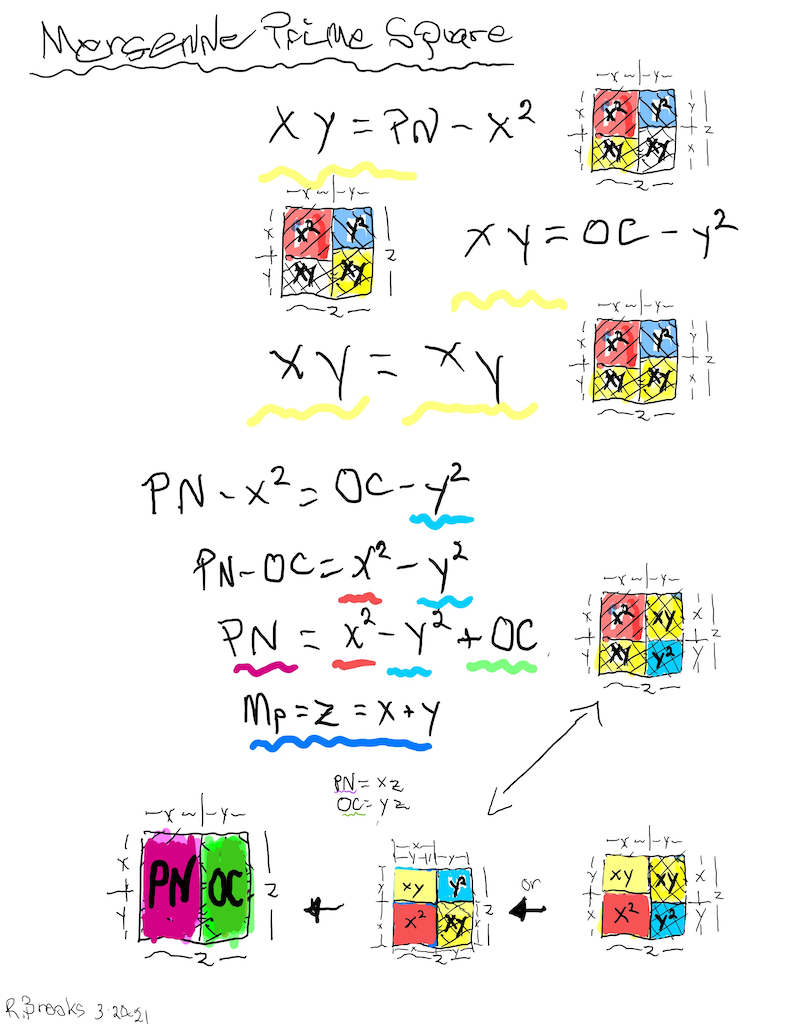 Mersenne Prime Square
xy = PN - x²
-x-|-y-
x y
x² y²
xy xy
z
y x
z
-x-|-y-
x y
x² y²
xy xy
z
z
xy = OC - y²
-x-|-y-
x y
x² y²
xy xy
z
y x
z
xy = xy
PN - x² = OC - y²
PN - OC = x² - y²
PN = x² - y² + OC
-x-|-y-
x y
x² xy
xy y²
x y
z
z
Mp = z = x + y
PN = xz
OC = yz
-x-|-y-
x y
PN OC
z
z
-x-
-y-1-|-y-
xy y²
x² xy
z
z
or
-x-|-y-
y x
xy xy
x² y²
x y
z
z
R.Brooks 3-20-21